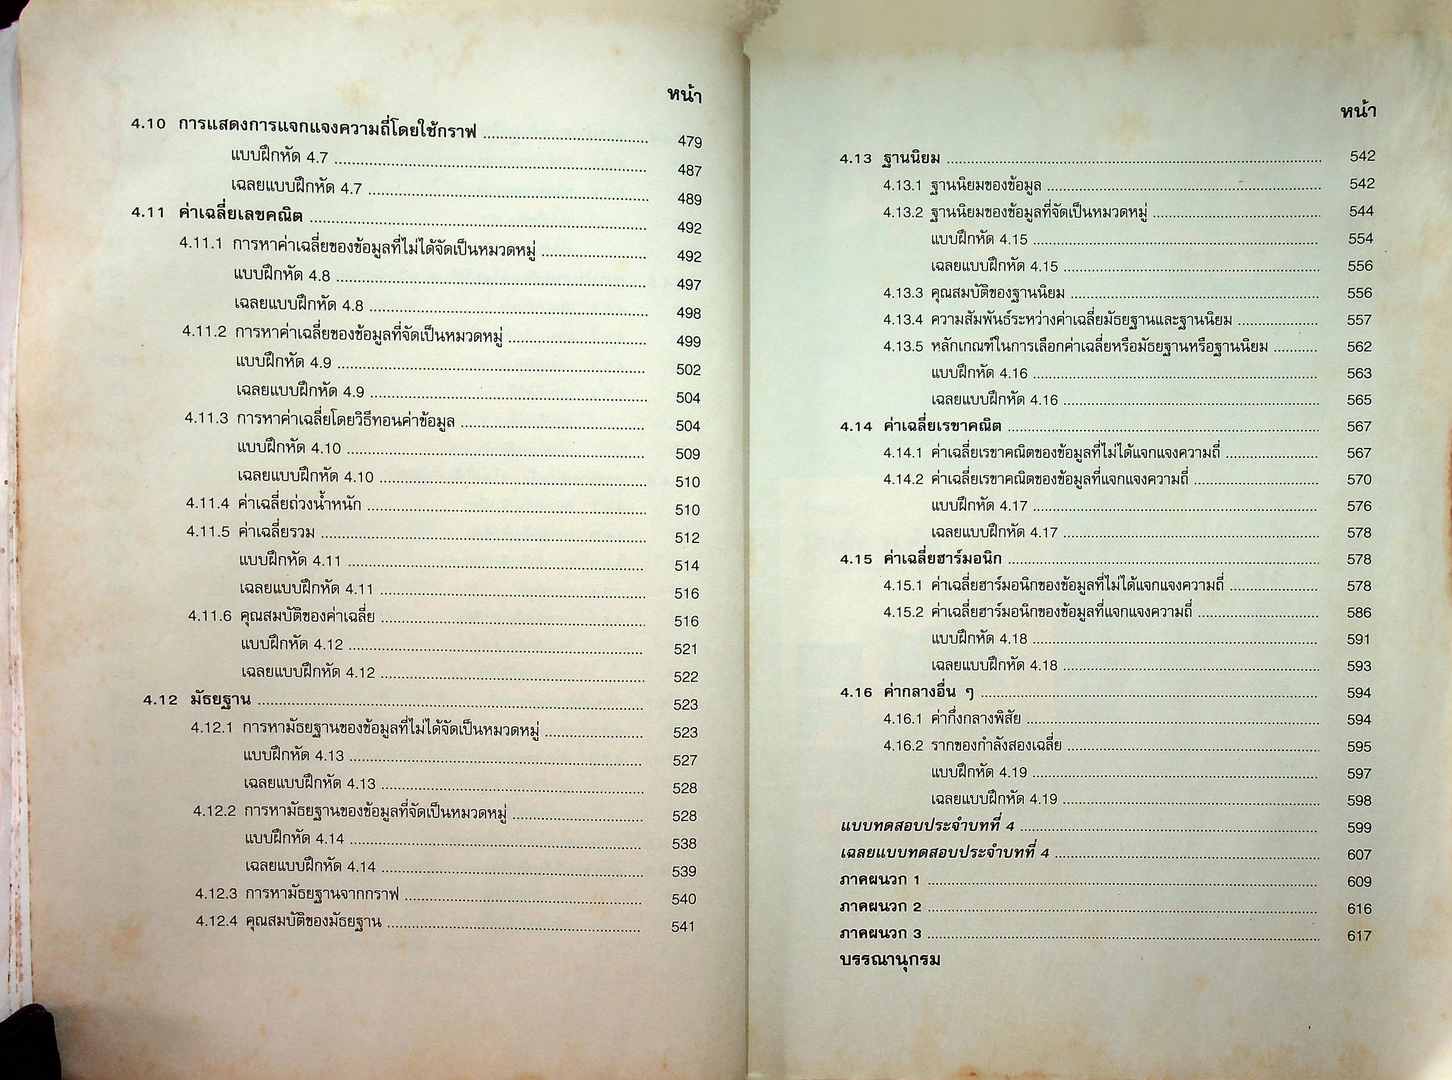 หน้า
4.10 การแสดงการแจกแจงความถี่โดยใช้กราฟ 479
แบบฝึกหัด 4.7 487
เฉลยแบบฝึกหัด 4.7 489
4.11 ค่าเฉลี่ยเลขคณิต 492
4.11.1 การหาค่าเฉลี่ยของข้อมูลที่ไม่ได้จัดเป็นหมวดหมู่ 492
แบบฝึกหัด 4.8 497
เฉลยแบบฝึกหัด 4.8 498
4.11.2 การหาค่าเฉลี่ยของข้อมูลที่จัดเป็นหมวดหมู่ 499
แบบฝึกหัด 4.9 502
เฉลยแบบฝึกหัด 4.9 504
4.11.3 การหาค่าเฉลี่ยโดยวิธีทอนค่าข้อมูล 504
แบบฝึกหัด 4.10 509
เฉลยแบบฝึกหัด 4.10 510
4.11.4 ค่าเฉลี่ยถ่วงน้ำหนัก 510
4.11.5 ค่าเฉลี่ยรวม 512
แบบฝึกหัด 4.11 514
เฉลยแบบฝึกหัด 4.11 516
4.11.6 คุณสมบัติของค่าเฉลี่ย 516
แบบฝึกหัด 4.12 521
เฉลยแบบฝึกหัด 4.12 522
4.12 มัธยฐาน 523
4.12.1 การหามัธยฐานของข้อมูลที่ไม่ได้จัดเป็นหมวดหมู่ 523
แบบฝึกหัด 4.13 527
เฉลยแบบฝึกหัด 4.13 528
4.12.2 การหามัธยฐานของข้อมูลที่จัดเป็นหมวดหมู่ 528
แบบฝึกหัด 4.14 538
เฉลยแบบฝึกหัด 4.14 539
4.12.3 การหามัธยฐานจากกราฟ 540
4.12.4 คุณสมบัติของมัธยฐาน 541
หน้า
4.13 ฐานนิยม 542
4.13.1 ฐานนิยมของข้อมูล 542
4.13.2 ฐานนิยมของข้อมูลที่จัดเป็นหมวดหมู่ 544
แบบฝึกหัด 4.15 554
เฉลยแบบฝึกหัด 4.15 556
4.13.3 คุณสมบัติของฐานนิยม 556
4.13.4 ความสัมพันธ์ระหว่างค่าเฉลี่ยมัธยฐานและฐานนิยม 557
4.13.5 หลักเกณฑ์ในการเลือกค่าเฉลี่ยหรือมัธยฐานหรือฐานนิยม 562
แบบฝึกหัด 4.16 563
เฉลยแบบฝึกหัด 4.16 565
4.14 ค่าเฉลี่ยเรขาคณิต 567
4.14.1 ค่าเฉลี่ยเรขาคณิตของข้อมูลที่ไม่ได้แจกแจงความถี่ 567
4.14.2 ค่าเฉลี่ยเรขาคณิตของข้อมูลที่แจกแจงความถี่ 570
แบบฝึกหัด 4.17 576
เฉลยแบบฝึกหัด 4.17 578
4.15 ค่าเฉลี่ยฮาร์มอนิก 578
4.15.1 ค่าเฉลี่ยฮาร์มอนิกของข้อมูลที่ไม่ได้แจกแจงความถี่ 578
4.15.2 ค่าเฉลี่ยฮาร์มอนิกของข้อมูลที่แจกแจงความถี่ 586
แบบฝึกหัด 4.18 591
เฉลยแบบฝึกหัด 4.18 593
4.16 ค่ากลางอื่น ๆ 594
4.16.1 ค่ากึ่งกลางพิสัย 594
4.16.2 รากของกำลังสองเฉลี่ย 595
แบบฝึกหัด 4.19 597
เฉลยแบบฝึกหัด 4.19 598
แบบทดสอบประจำบทที่ 4 599
เฉลยแบบทดสอบประจำบทที่ 4 607
ภาคผนวก 1 609
ภาคผนวก 2 616
ภาคผนวก 3 617
บรรณานุกรม